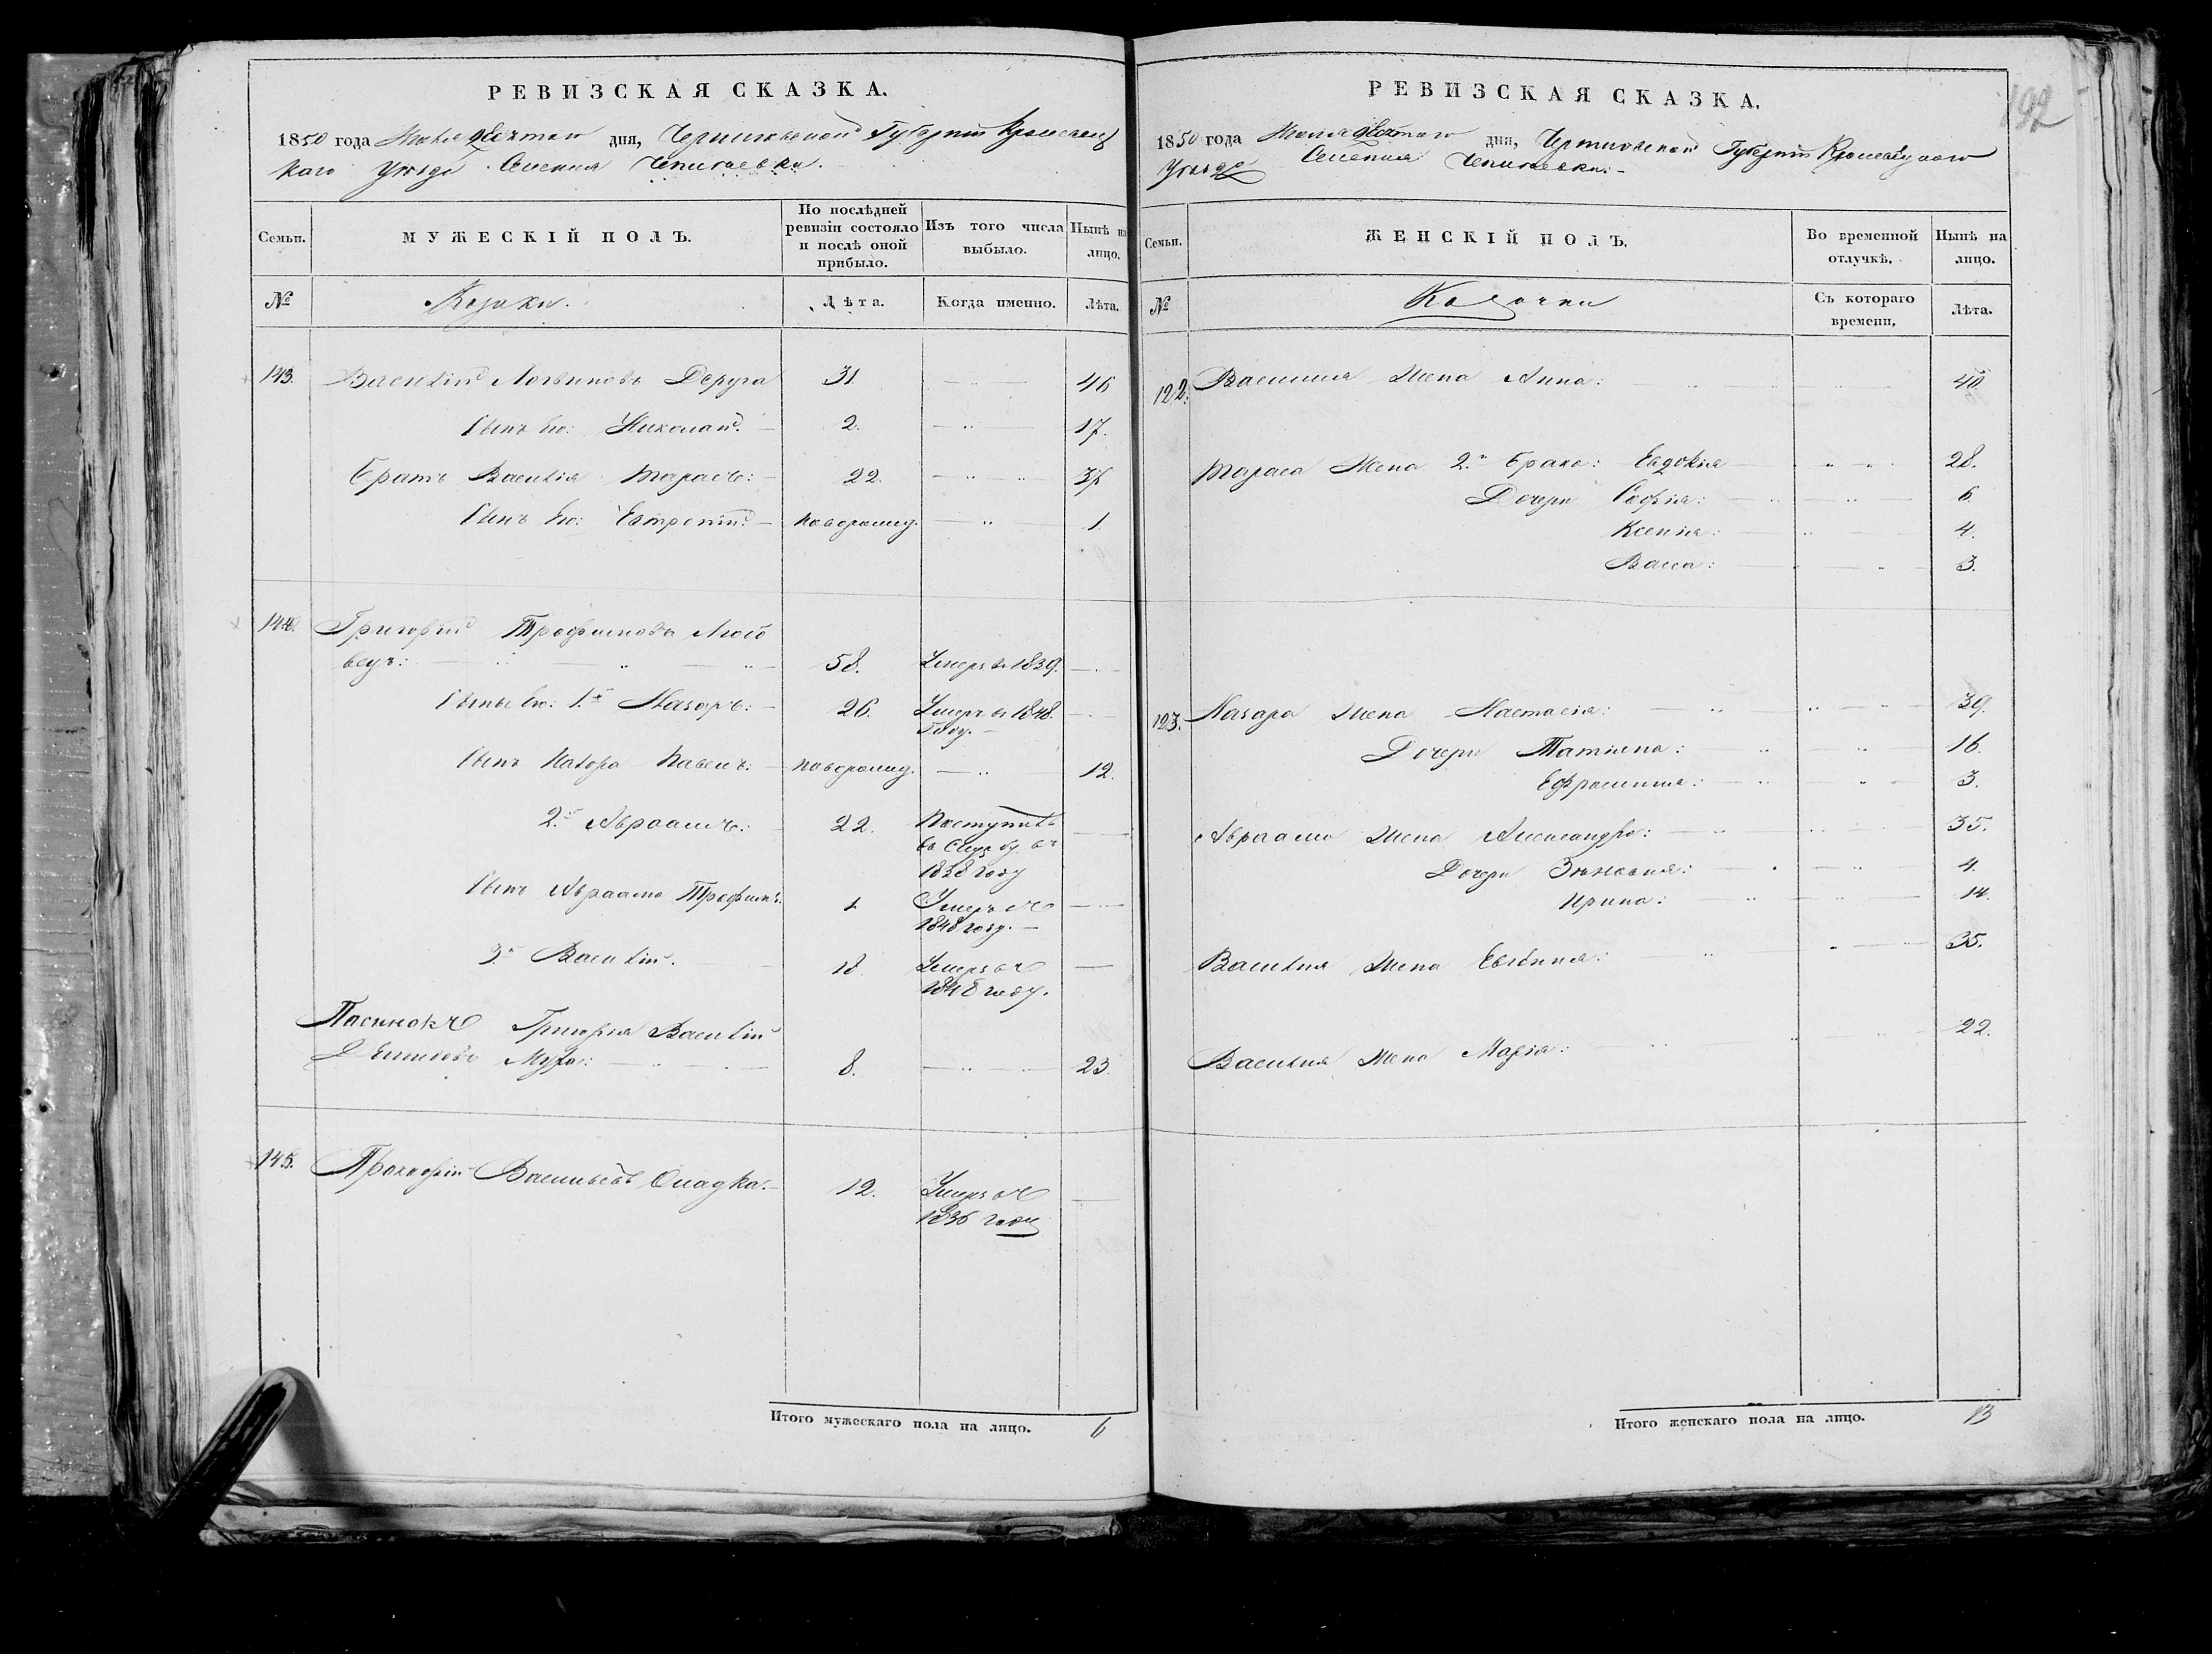 РЕВИЗСКАЯ СКАЗКА.
1850 года дня, Черниговской Губерніи Кролевец
каго Уезда Селения Чепиевка.
Семьи.
МУЖЕСКІЙ ПОЛЪ.
По послѣдней ревизіи состояло и послѣ оной прибыло.
Изъ того числа выбыло.
Нынѣ на лицо.
№
Козаки.
Лѣта.
Когда именно.
Лѣта.
143. Василій Логвиновъ Деруга 31. 46
Сынъ его: Николай. 2. 17.
Братъ Василія Тарасъ: 22. 37
Сынъ его: Евтропій новорожд. 1.
144. Григорій Трофимовъ Любо
вецъ: 58. Умеръ въ 1839.
Сыны его: 1й Назаръ: 26. Умеръ въ 1848.
Году.
Сынъ Назара Павелъ: новорожд. 12.
2й Авраамъ: 22. Поступилъ
въ Службу въ
1838 году
Сынъ Авраама Трофимъ. 1. Умеръ въ
1848 году.
3й Василій. 18. Умеръ въ
1848 году.
Пасинокъ Григорія Василій
Муха: 8. 23.
145. Прокофій Васильевъ Сладка. 12. Умеръ въ
1836 году
Итого мужескаго пола на лицо. 6
192
РЕВИЗСКАЯ СКАЗКА.
1850 года дня, Черниговской Губерніи Кролевецкого
Уезда Селения Чепиевки.
Семьи.
ЖЕНСКІЙ ПОЛЪ.
Во временной отлучкѣ.
Нынѣ на лицо.
№
Козачки
Съ котораго времени.
Лѣта.
122. Василия Жена Анна: 40.
Тараса Жена 2го брака: Евдокія 28.
Дочери Софія: 6.
Ксенія: 4.
Васса: 3.
123. Назара Жена Настасія: 39.
Дочери Татіяна: 16.
Ефросиния: 3.
Авраама Жена Александра: 35.
Дочери Зѣновия: 4.
Ирина: 14.
Василия Жена Евгения: 35.
Василия Жена Марія: 22.
Итого женскаго пола на лицо. 13